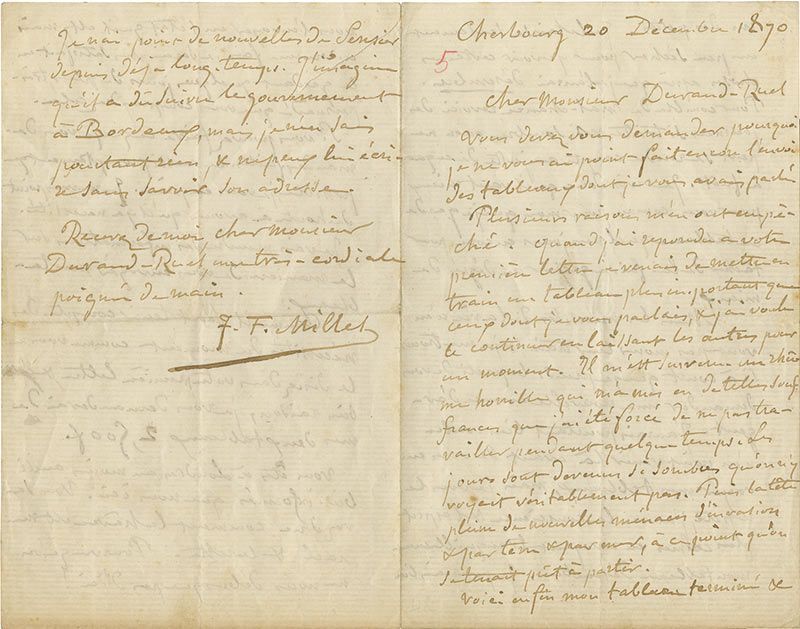 Cherbourg 20 Décembre 1870
5
Cher Monsieur Durand-Ruel
Vous devez vous demander pourquoi
je ne vous ai point fait encore l'envoi
des tableaux dont je vous avais parlé.
Plusieurs raisons m'en ont empê-
ché. Quand j'ai repondu a votre
première lettre je venais de mettre en
train un tableau plus important que
ceux dont je vous parlais, & j'ai voulu
le continuer en laissant les autres pour
un moment. Il m'est survenu un rhû-
me horrible qui m'a mis en de telles souf-
frances que j'ai été forcé de ne pas tra-
vailler pendant quelque temps. Les
jours sont devenus si sombres qu'on n'y
voyait véritablement pas. Puis la tête
pleine de nouvelles menaces d'invasion
& par terre & par mer, à ce point qu'on
se tenait prêt à partir.
Voici enfin mon tableau terminé &
Je n'ai point de nouvelles de Sensier
depuis déja long temps. J'imagine
qu'il a dû suivre le gouvernement
à Bordeaux, mais je n'en sais
pourtant rien, & ne peux lui écri-
re sans savoir son adresse.
Recevez de moi, cher Monsieur
Durand-Ruel une très-cordiale
poignée de main.
J. F. Millet
2,500 f.